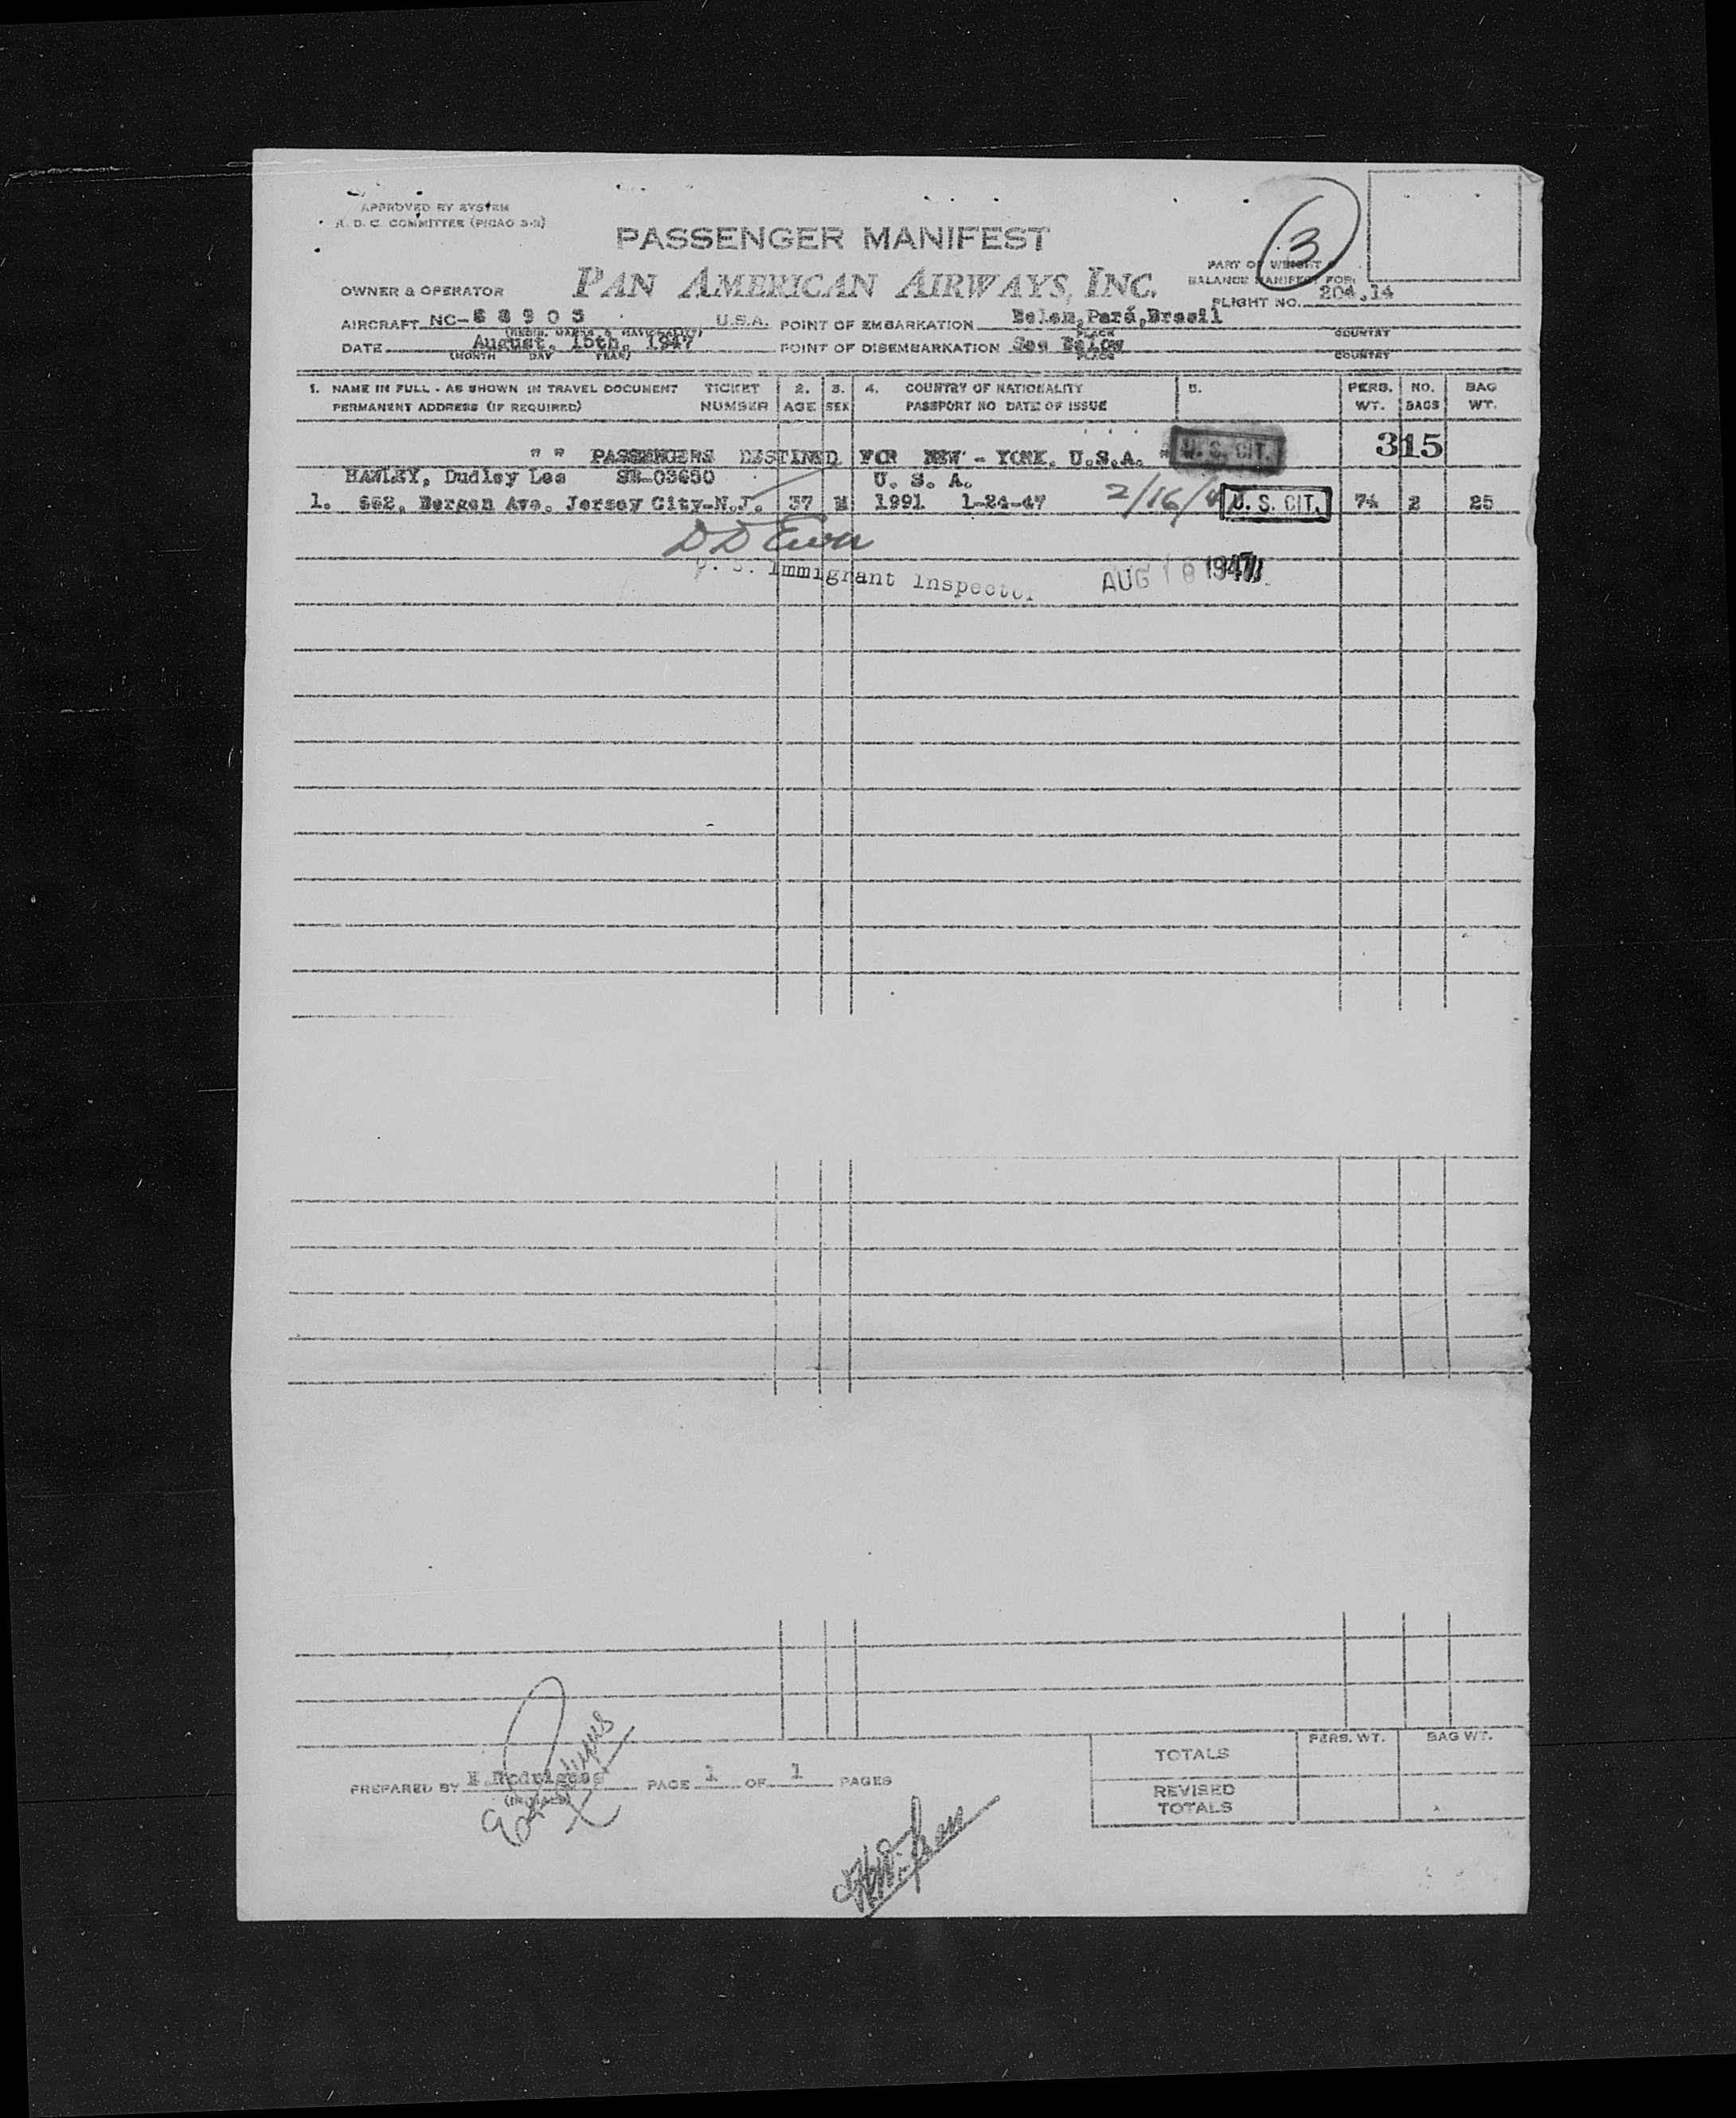 APPROVED BY SYSTEM
R. D. C. COMMITTEE (PICAO 3-3)
3
PASSENGER MANIFEST
PART OF WEIGHT &
BALANCE MANIFEST FOR:
OWNER & OPERATOR PAN AMERICAN AIRWAYS, INC.
FLIGHT NO. 204.14
AIRCRAFT NC- 88905 U.S.A. POINT OF EMBARKATION Belem,Pará,Brasil
(REGIS. MARKS & NATIONALITY) PLACE COUNTRY
DATE August, 15th, 1947 POINT OF DISEMBARKATION See Below
(MONTH DAY YEAR) PLACE COUNTRY
1. NAME IN FULL - AS SHOWN IN TRAVEL DOCUMENT TICKET 2. 3. 4. COUNTRY OF NATIONALITY 5. PERS. NO. BAG
PERMANENT ADDRESS (IF REQUIRED) NUMBER AGE SEX PASSPORT NO DATE OF ISSUE WT. BAGS WT.
" " PASSENGERS DESTINED FOR NEW - YORK. U.S.A. " U. S. CIT. 315
HAWLEY, Dudley Lee SR-03650 U. S. A.
1. 652, Bergen Ave. Jersey City-N.J. 37 M 1991 1-24-47 2/16/ U. S. CIT. 74 2 25
U. S. Immigrant Inspector AUG 18 1947
PREPARED BY E Rodrigues PAGE 1 OF 1 PAGES
(INITIALS)
PERS. WT. BAG WT.
TOTALS
REVISED
TOTALS